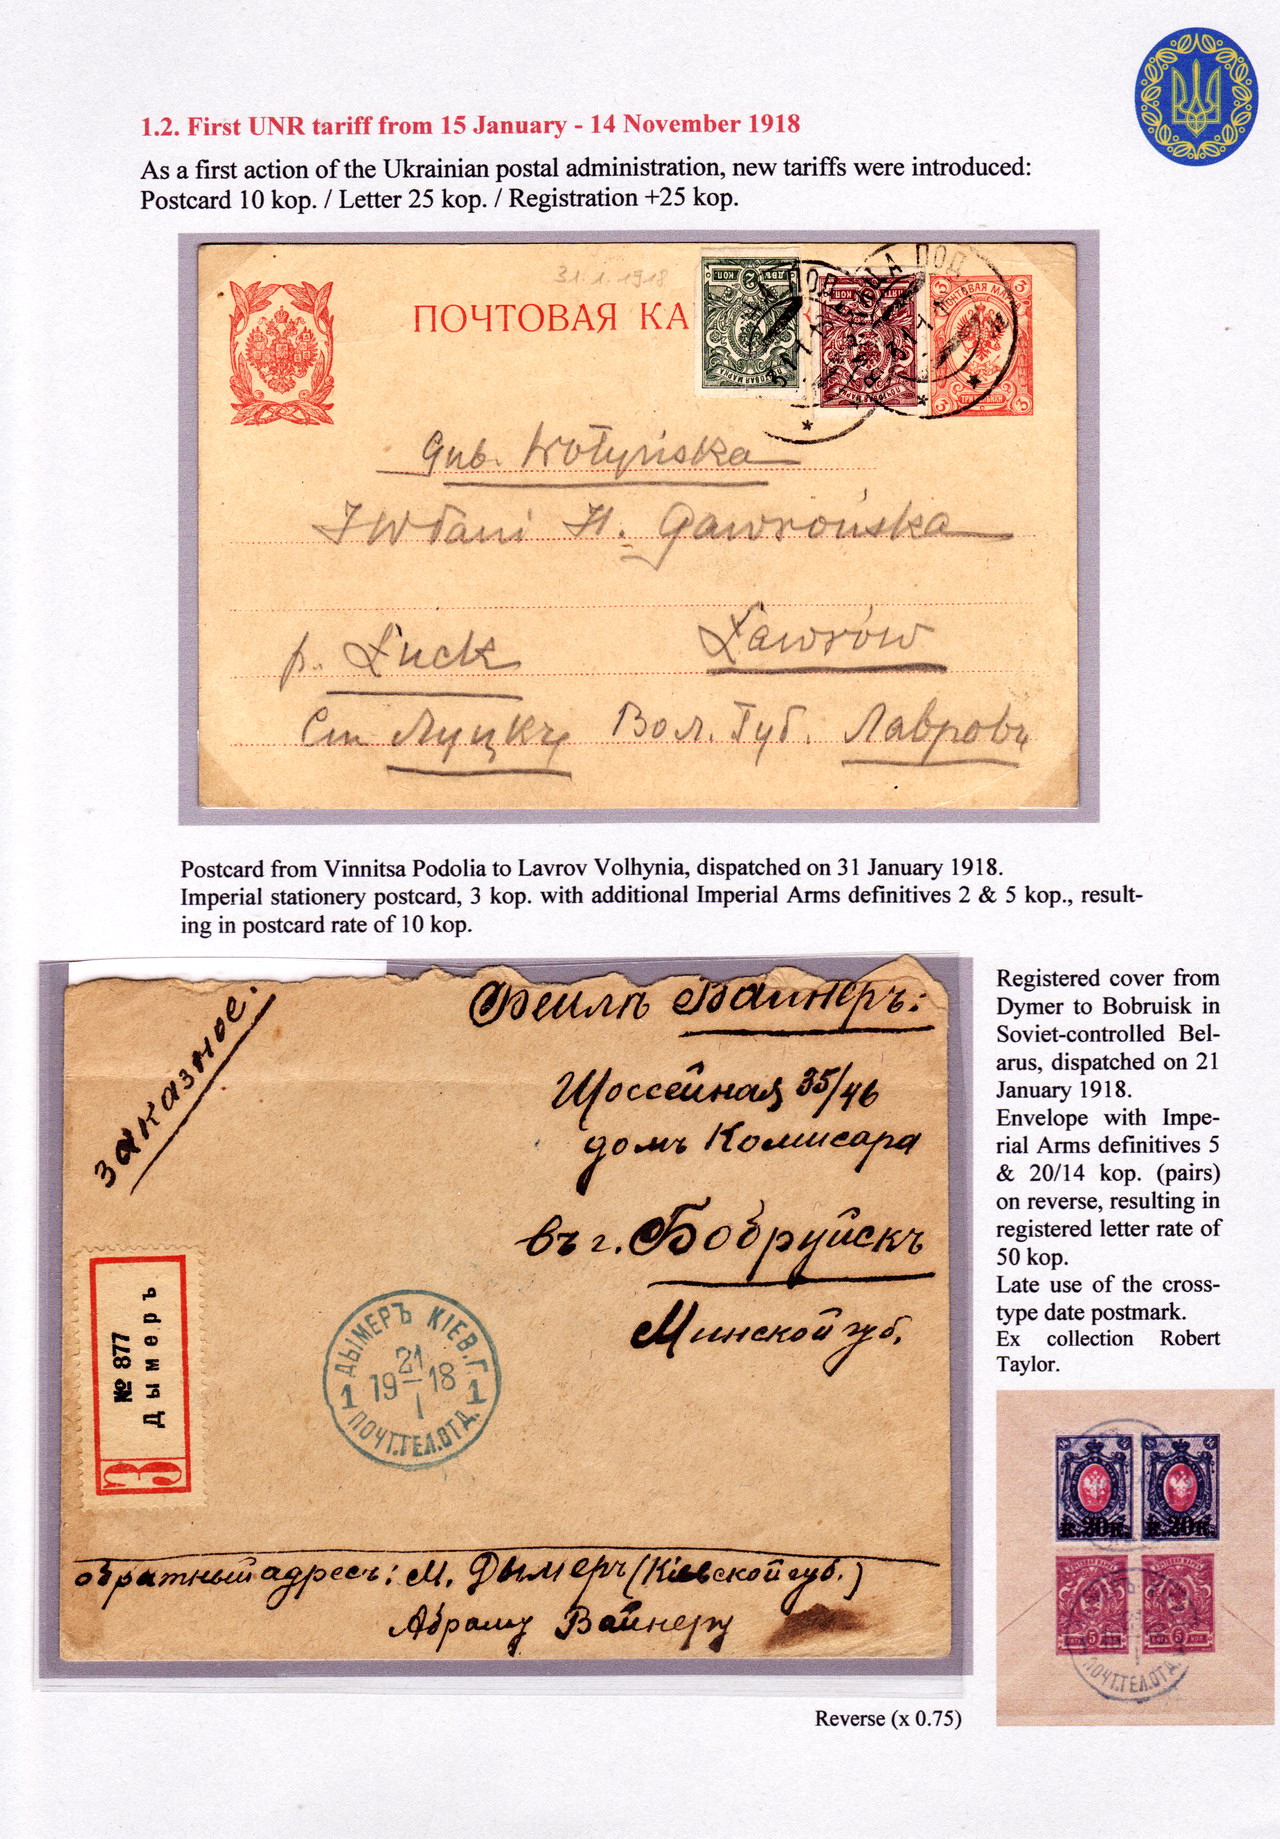 1.2. First UNR tariff from 15 January - 14 November 1918
As a first action of the Ukrainian postal administration, new tariffs were introduced:
Postcard 10 kop. / Letter 25 kop. / Registration +25 kop.
31.1.1918
ПОЧТОВАЯ КА
ПОЧТОВАЯ МАРКА
3
Gub. Wołyńska
JWPani H. Gawrońska
p. Łuck Ławrów
Ст Луцкъ Вол. Губ. Лавровъ
Postcard from Vinnitsa Podolia to Lavrov Volhynia, dispatched on 31 January 1918.
Imperial stationery postcard, 3 kop. with additional Imperial Arms definitives 2 & 5 kop., result-
ing in postcard rate of 10 kop.
заказное.
Фейгѣ Вайнеръ:
Шоссейная 35/46
домъ Комисара
въ г. Бобруйскъ
Минской губ.
№ 877
Дымеръ
З
ДЫМЕРЪ КІЕВ.Г.
21
1 19 18 1
I
ПОЧТ.ТЕЛ.ОТД.
обратный адресъ: М. Дымеръ (Кіевской губ.)
Абраму Вайнеру
Registered cover from
Dymer to Bobruisk in
Soviet-controlled Bel-
arus, dispatched on 21
January 1918.
Envelope with Impe-
rial Arms definitives 5
& 20/14 kop. (pairs)
on reverse, resulting in
registered letter rate of
50 kop.
Late use of the cross-
type date postmark.
Ex collection Robert
Taylor.
к. 20 к. к. 20 к.
5 5
ПОЧТ.ТЕЛ.ОТД.
Reverse (x 0.75)